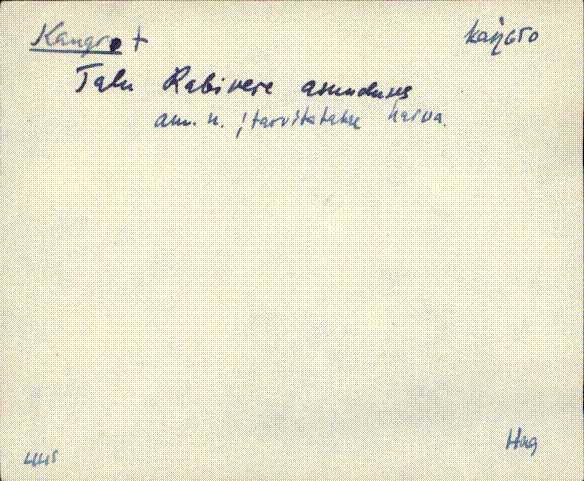 Kangro +
kaŋGro
Talu Rabivere asunduses
am. n. ; tarvitatakse harva.
Hag